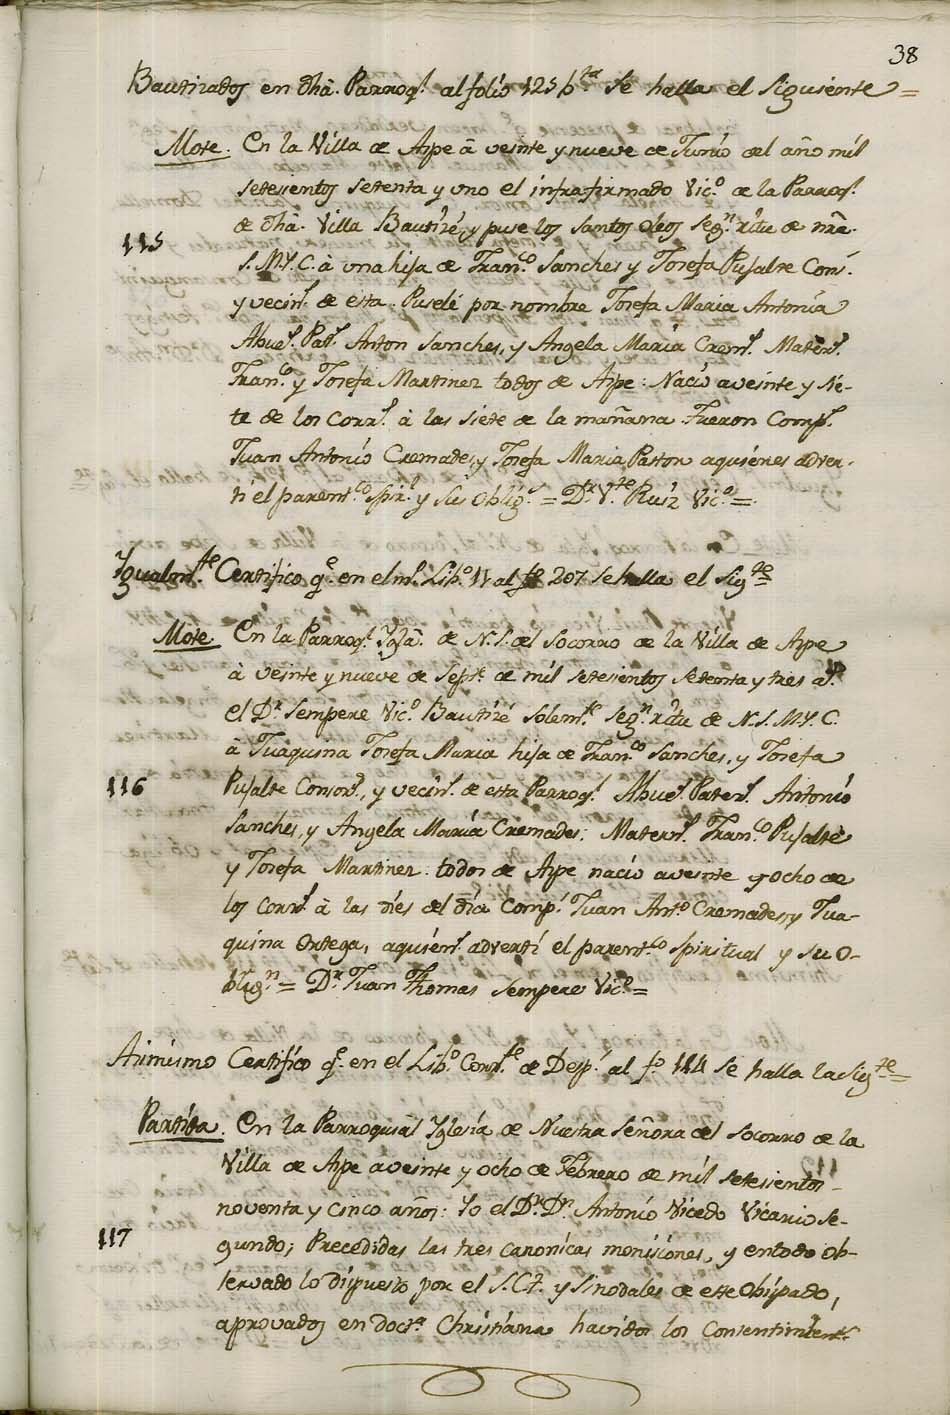 38
Bautizados en dha. Parroql. al folio 125 bta se halla el siguiente =
Mote. En la Villa de Aspe â veinte y nueve de Junio del año mil
setesientos setenta y uno el infrafirmado Vico. de la Parroql.
de dha. Villa Bautizé, y puse los santos oleos segn. ritu de nra.
115
S.M.Y.C. à una hija de Franco. Sanches y Josefa Pujalte Cons.
y vecins. de esta. Puselé por nombre Josefa Maria Antonia
Abues. Pats. Anton Sanches, y Angela Maria Crems. Materns.
Franco. y Josefa Martinez todos de Aspe: Nació a veinte y sie-
te de los Corrs. à las siete de la mañana. Fueron Comps.
Juan Antonio Cremades, y Josefa Maria Pastor aquienes adver-
ti el parentco. spirl. y sus obligs. = Dr. Vte. Ruiz Vico. =
Ygualmte. Certifico qe. en el m. Libo. 11 al fo. 207 se halla el sigte =
Mote En la Parroql. Yglâ. de N.S. del Socorro de la Villa de Aspe
à veinte y nueve de Sepre. de mil setesientos setenta y tres as.
el Dr. Sempere Vico. Bautizé solemte. segn. ritu de N.S.M.Y.C.
à Juaquina Josefa Maria hija de Franco. Sanches, y Josefa
116
Pujalte Consors., y vecins. de esta Parroql. Abues. Paters. Antonio
Sanches, y Angela Maria Cremades: Materns. Franco. Pujalte
y Josefa Martinez: todos de Aspe nació a veinte y ocho de
los corrs. à las dies del dia Comps. Juan Anto. Cremades, y Jua-
quina Ortega, aquiens. advertí el parentco. spiritual y su o-
blign. = Dr. Juan Thomas Sempere Vico. =
Asimismo Certifico qe. en el Libo. Corrte. de Desps. al fo. 114 se halla la sigte =
Partida. En la Parroquial Yglesia de Nuestra Señora del Socorro de la
Villa de Aspe a veinte y ocho de Febrero de mil setesientos
noventa y cinco años: Yo el Dr. Dn. Antonio Vicedo Vicario se-
117
gundo; Precedidas las tres canonicas monisiones, y en todo ob-
servado lo dispuesto por el S.C.T. y Sinodales de este Obispado,
aprovados en docta. Christiana havidos los Consentimients.